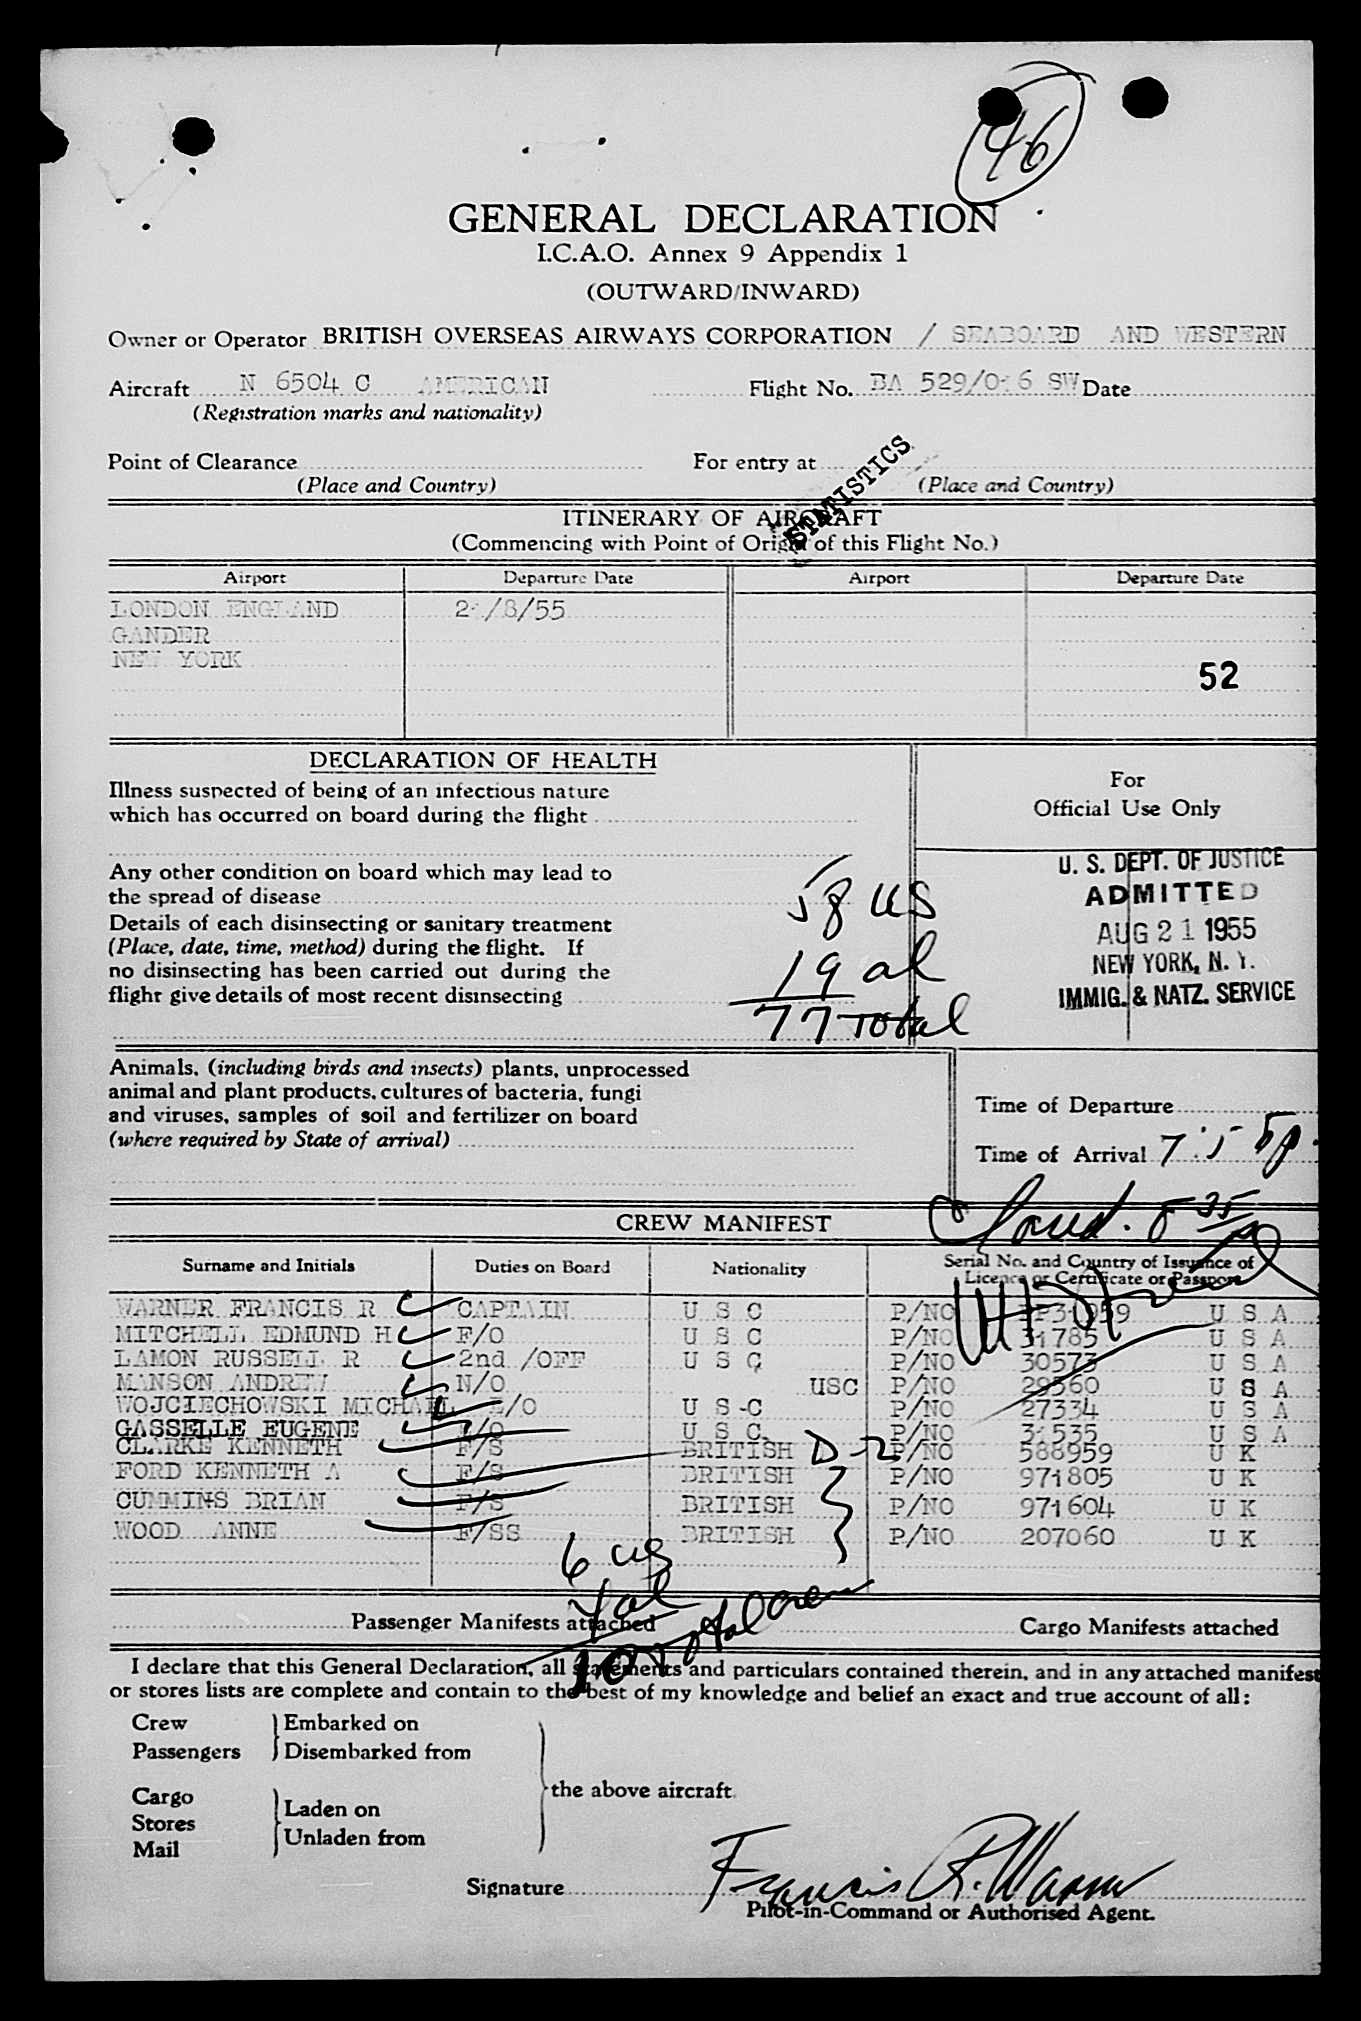 46
GENERAL DECLARATION
I.C.A.O. Annex 9 Appendix 1
(OUTWARD/INWARD)
Owner or Operator BRITISH OVERSEAS AIRWAYS CORPORATION / SEABOARD AND WESTERN
Aircraft N 6504 C AMERICAN Flight No. BA 529/ SW Date
(Registration marks and nationality)
Point of Clearance For entry at
(Place and Country) (Place and Country)
STATISTICS
ITINERARY OF AIRCRAFT
(Commencing with Point of Origin of this Flight No.)
Airport Departure Date Airport Departure Date
LONDON ENGLAND /8/55
GANDER
NEW YORK
52
DECLARATION OF HEALTH
Illness suspected of being of an infectious nature
which has occurred on board during the flight
For
Official Use Only
Any other condition on board which may lead to
the spread of disease
Details of each disinsecting or sanitary treatment
(Place, date, time, method) during the flight. If
no disinsecting has been carried out during the
flight give details of most recent disinsecting
58 US
19 al
77 Total
U. S. DEPT. OF JUSTICE
ADMITTED
AUG 21 1955
NEW YORK, N. Y.
IMMIG. & NATZ. SERVICE
Animals, (including birds and insects) plants, unprocessed
animal and plant products, cultures of bacteria, fungi
and viruses, samples of soil and fertilizer on board
(where required by State of arrival)
Time of Departure
Time of Arrival 7:55p.
CREW MANIFEST
Surname and Initials Duties on Board Nationality Serial No. and Country of Issuance of
Licence or Certificate or Passport
WARNER FRANCIS R CAPTAIN U S C P/NO U S A
MITCHELL EDMUND H F/O U S C P/NO 31785 U S A
LAMON RUSSELL R 2nd /OFF U S C P/NO 30573 U S A
MANSON ANDREW N/O USC P/NO 29560 U S A
WOJCIECHOWSKI MICHAEL /O U S C P/NO 27334 U S A
GASSELLE EUGENE /O U S C P/NO 31535 U S A
CLARKE KENNETH F/S BRITISH D-2 P/NO 588959 U K
FORD KENNETH A F/S BRITISH P/NO 971805 U K
CUMMINS BRIAN F/S BRITISH P/NO 971604 U K
WOOD ANNE F/SS BRITISH P/NO 207060 U K
6 us
4 al
10 total crew
Passenger Manifests attached Cargo Manifests attached
I declare that this General Declaration, all statements and particulars contained therein, and in any attached manifest
or stores lists are complete and contain to the best of my knowledge and belief an exact and true account of all:
Crew Embarked on
Passengers Disembarked from
the above aircraft
Cargo
Stores Laden on
Mail Unladen from
Signature Francis R. Warner
Pilot-in-Command or Authorised Agent.